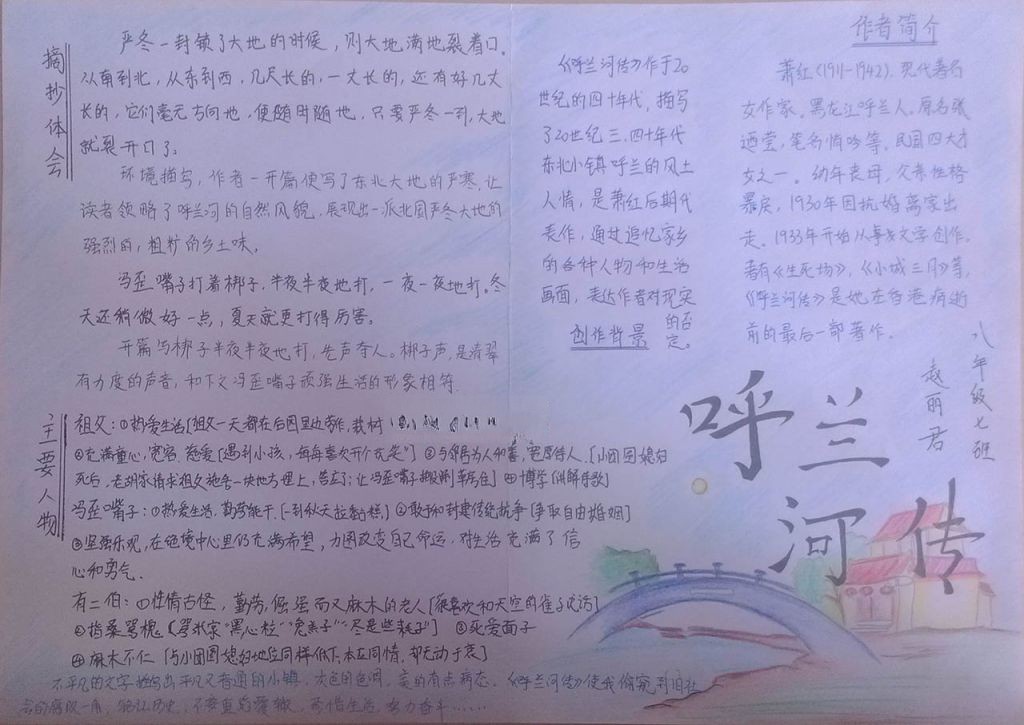 摘抄体会
严冬一封锁了大地的时候，则大地满地裂着口。
从南到北，从东到西，几尺长的，一丈长的，还有好几丈
长的，它们毫无方向地，便随时随地，只要严冬一到，大地
就裂开口了。
环境描写，作者一开篇便写了东北大地的严寒，让
读者领略了呼兰河的自然风貌，展现出一派北国严冬大地的
强烈的，粗犷的乡土味。
冯歪嘴子打着梆子，半夜半夜地打，一夜一夜地打。冬
天还稍微好一点，夏天就更打得厉害。
开篇写梆子半夜半夜地打，先声夺人。梆子声，是清翠
有力度的声音，和下文冯歪嘴子顽强生活的形象相符
主要人物
祖父：①热爱生活[祖父一天都在后园里边劳作，教材
②充满童心，宽容，慈爱[遇到小孩，每每喜欢开个玩笑] ③与邻居为人和善，宽厚待人。[小团圆媳妇
死后，老胡家请求祖父施舍一块地方埋上，答应了；让冯歪嘴子搬到草房住] ④博学[讲解诗歌]
冯歪嘴子：①热爱生活，勤劳能干[一到秋天拉粘糕] ②敢于和封建传统抗争[争取自由婚姻]
③坚强乐观，在绝境中心里仍充满希望，力图改变自己命运，对生活充满了信
心和勇气.
有二伯：①性情古怪，勤劳，倔强而又麻木的老人[很喜欢和天空的雀子说话]
②指桑骂槐 [骂我家“黑心粒”“兔羔子”“尽是些耗子”] ③死爱面子
④麻木不仁 [与小团圆媳妇地位同样低下，本应同情，却无动于衷]
不平凡的文字描写出平凡又普通的小镇，灰色的色调，真的有点病态。《呼兰河传》使我偷窥到旧社
会的腐败一角，
《呼兰河传》作于20
世纪的四十年代，描写
了20世纪三、四十年代
东北小镇呼兰的风土
人情，是萧红后期代
表作，通过追忆家乡
的各种人物和生活
画面，表达作者对现实
的否定。
创作背景
作者简介
萧红（1911-1942），现代著名
女作家，黑龙江呼兰人，原名张
迺莹，笔名悄吟等，民国四大才
女之一。幼年丧母，父亲性格
暴戾，1930年因抗婚离家出
走。1933年开始从事文学创作。
著有《生死场》，《小城三月》等，
《呼兰河传》是她在香港病逝
前的最后一部著作。
八年级七班
袁丽君
呼兰
河传